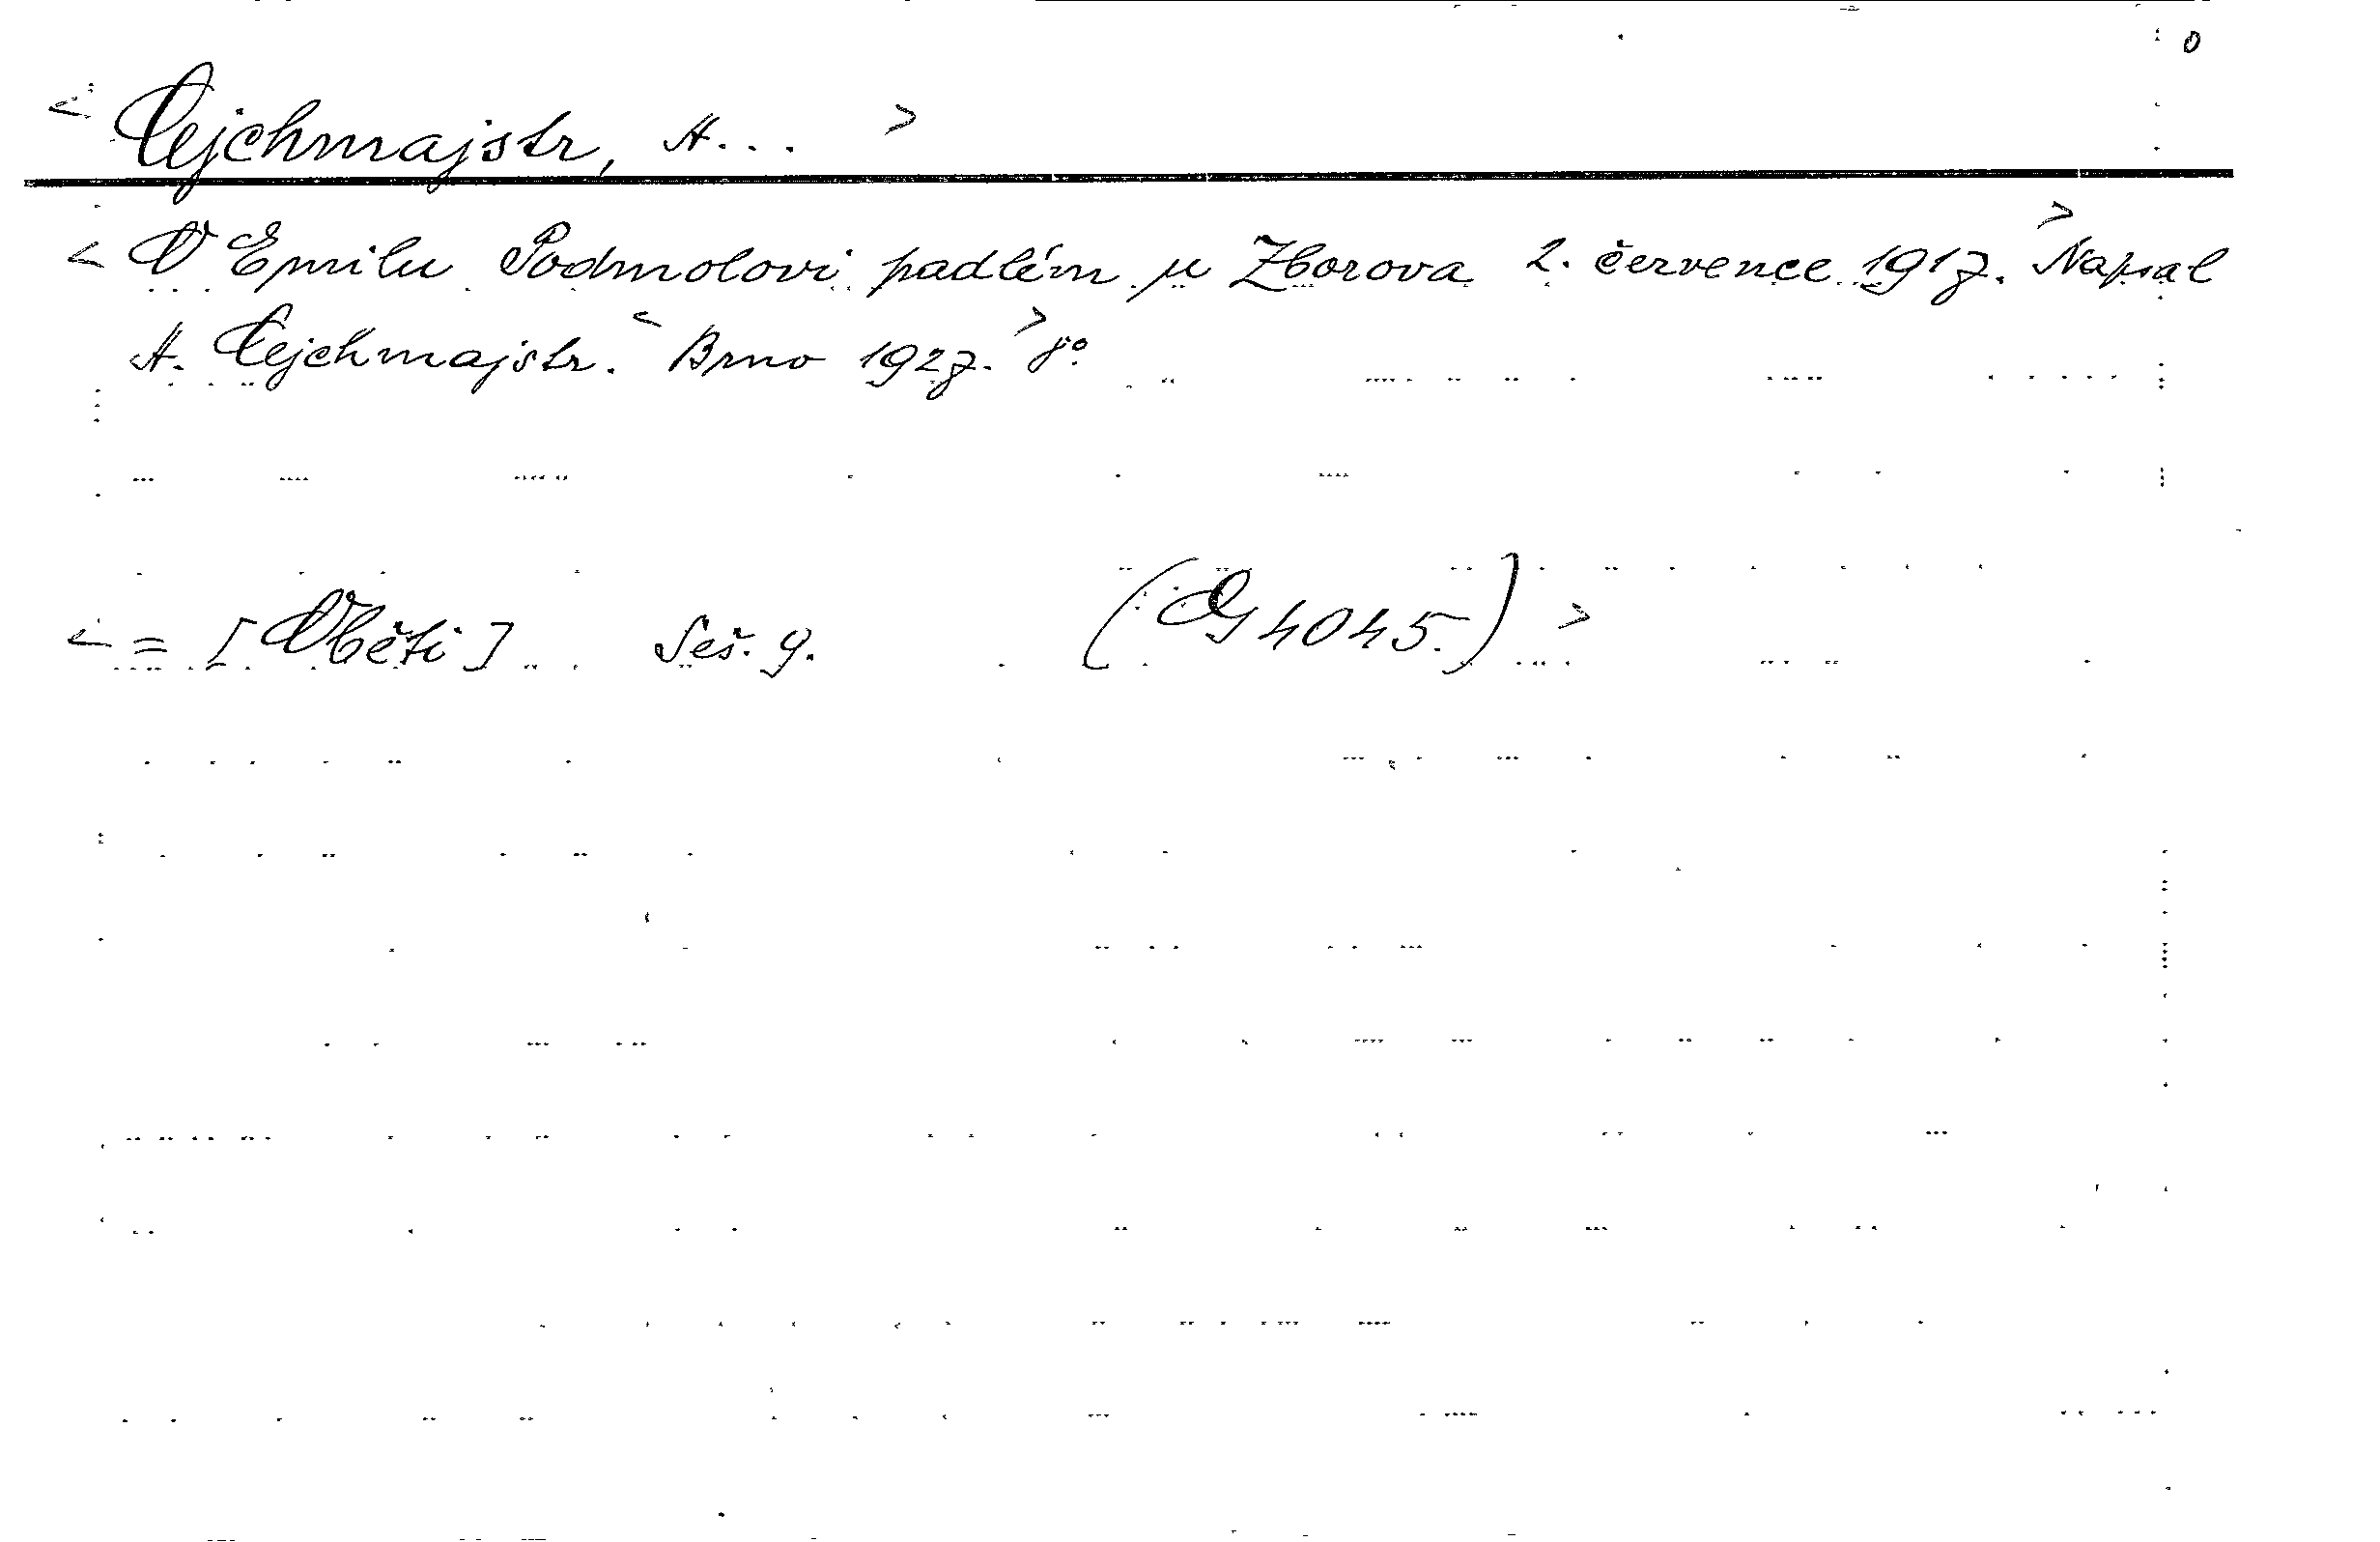 0
< Cejchmajstr, A... >
< O Emilu Podmolovi padlém u Zborova 2. července 1917. > Napsal
A. Cejchmajstr. < Brno 1927. > 8°.
< = [Oběti] Seš. 9. (G 4045.) >